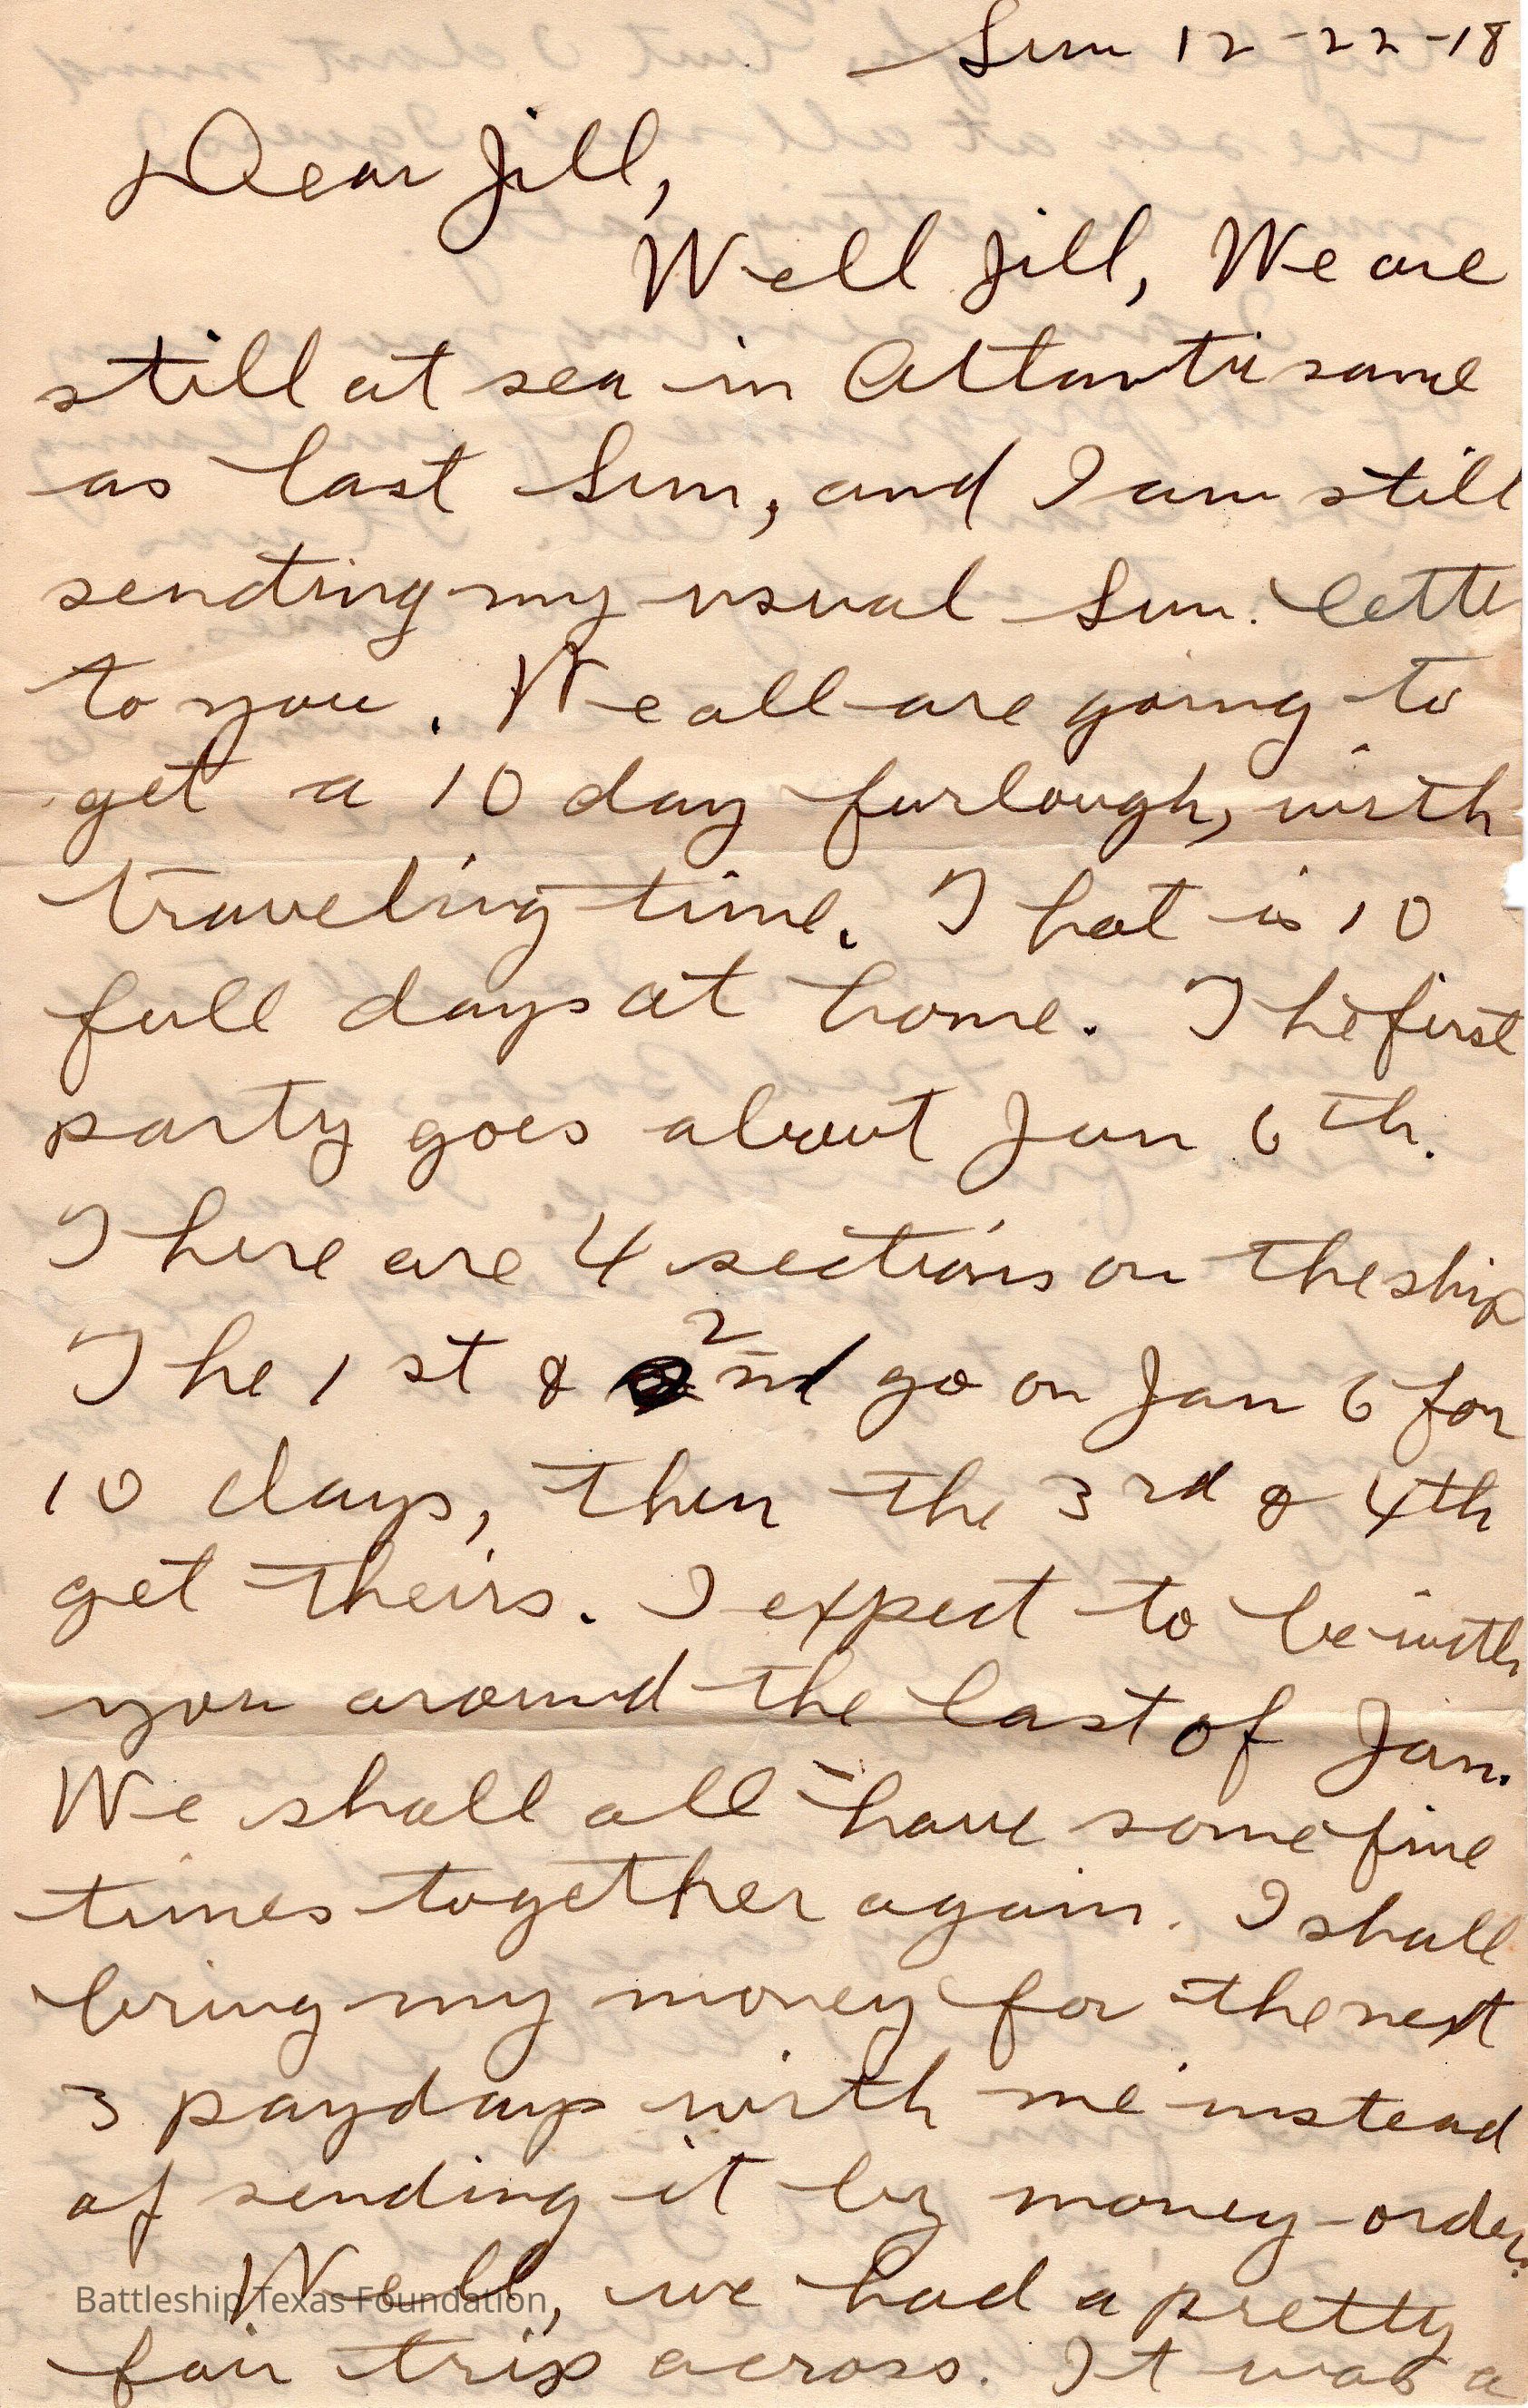 Sun 12-22-18
Dear Jill,
Well Jill, We are
still at sea in Atlantic same
as last Sun, and I am still
sending my usual Sun. letter
to you. We all are going to
get a 10 day furlough, with
traveling time. That is 10
full days at home. The first
party goes about Jan 6th.
There are 4 sections on the ship
The 1st & 2nd go on Jan 6 for
10 days, then the 3rd & 4th
get theirs. I expect to be with
you around the last of Jan.
We shall all have some fine
times together again. I shall
bring my money for the next
3 paydays with me instead
of sending it by money-order.
Well, we had a pretty
Battleship Texas Foundation
fair trip across. It was a